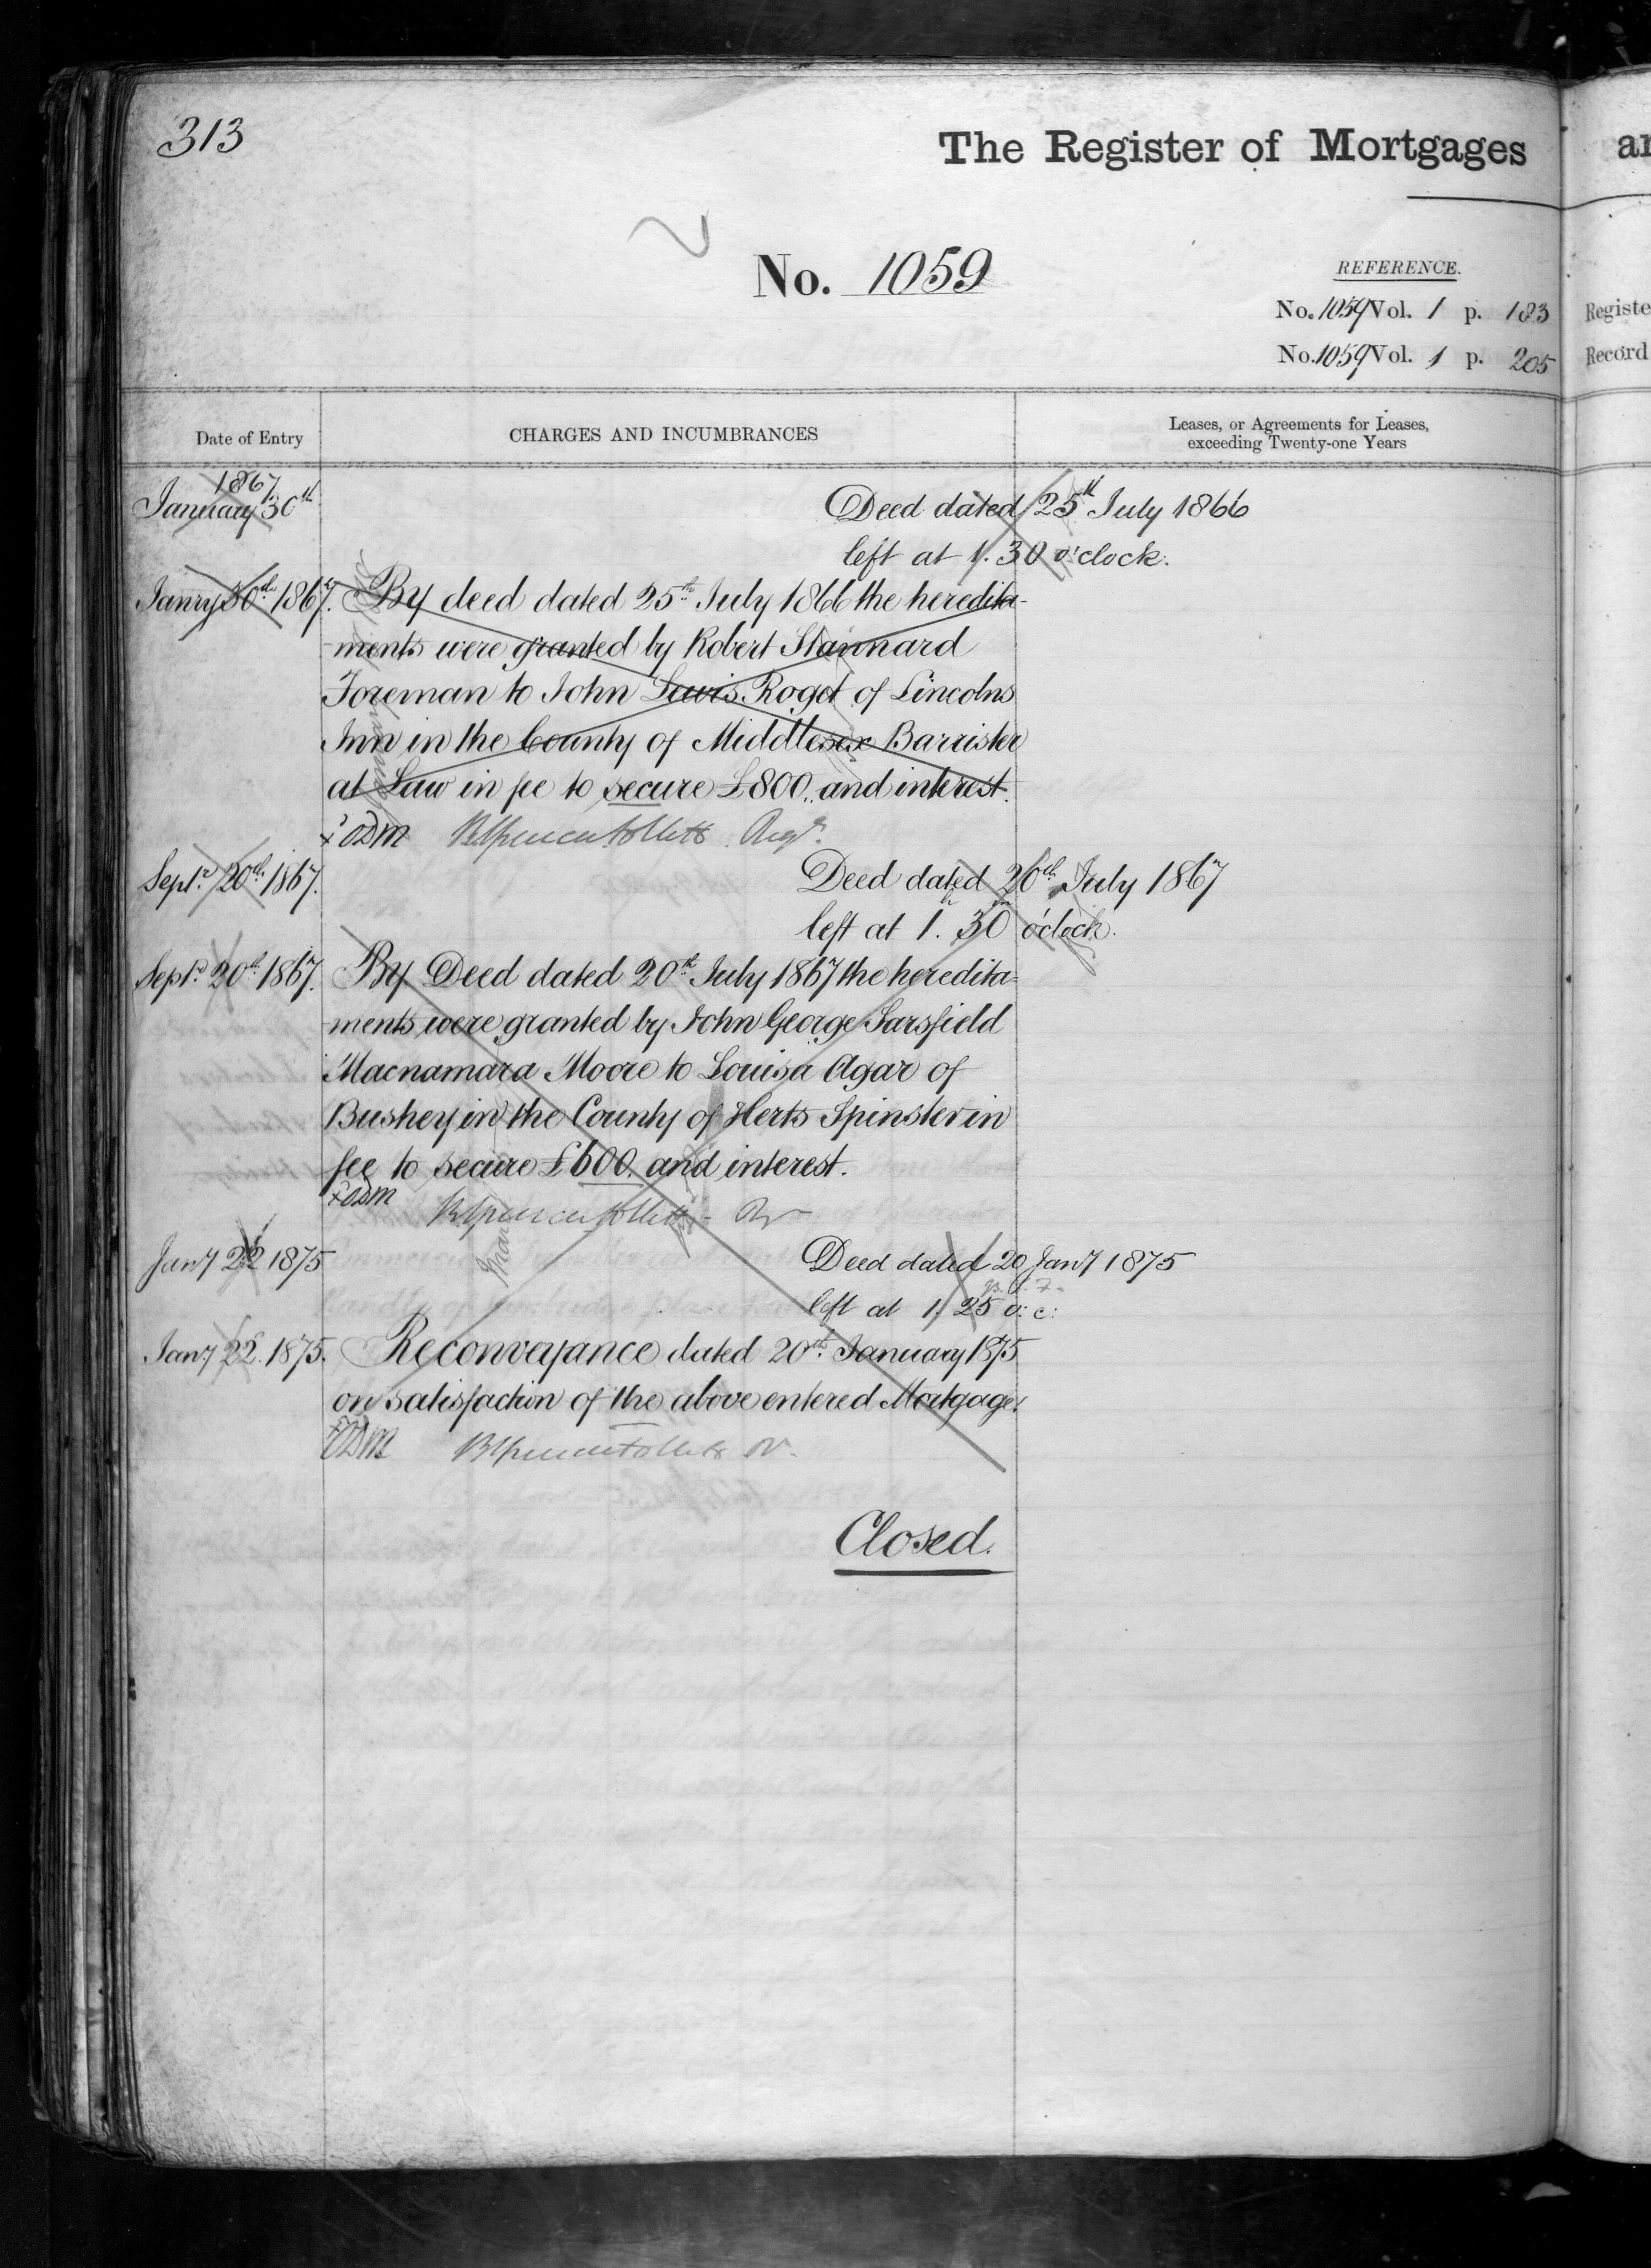 313
The Register of Mortgages
No. 1059
REFERENCE.
No. 1059 Vol. 1 p. 183
No. 1059 Vol. 1 p. 205
Registe
Record
Date of Entry
CHARGES AND INCUMBRANCES
Leases, or Agreements for Leases,
exceeding Twenty-one Years
1867.
January 30th
Deed dated 25th July 1866
left at 1.30 o'clock.
Janry 30th 1867. By deed dated 25th July 1866 the heredita-
-ments were granted by Robert Stannard
Foreman to John Lewis Roget of Lincolns
Inn in the County of Middlesex Barrister
at Law in fee to secure £800,, and interest.
Septr. 20th 1867.
Deed dated 20th July 1867
left at 1h. 30m o'clock.
Septr. 20th 1867. By Deed dated 20th July 1867 the heredita-
-ments were granted by John George Sarsfield
Macnamara Moore to Louisa Agar of
Bushey in the County of Herts Spinster in
fee to secure £600. and interest.
Jany 22 1875
Deed dated 20 Jany 1875
left at 1. 25 o: c:
Jany 22. 1875. Reconveyance dated 20th January 1875
on satisfaction of the above entered Mortgage.
Closed.